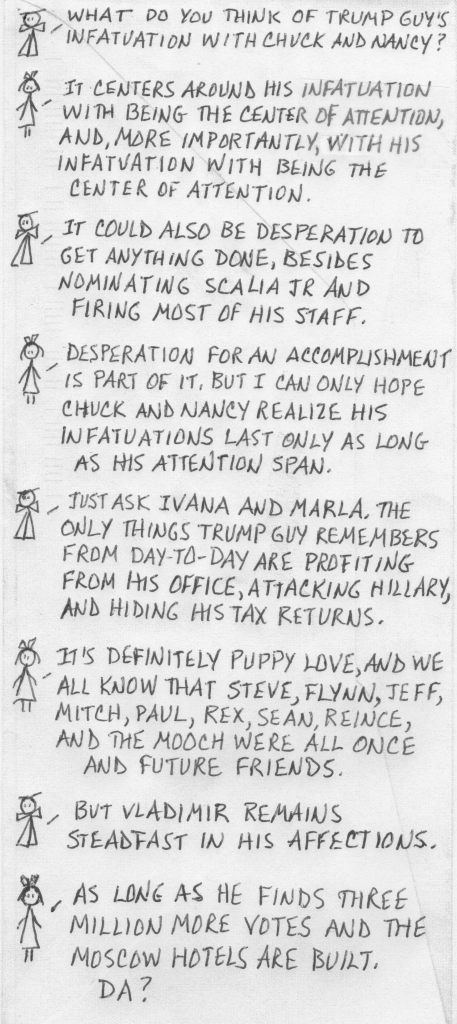 WHAT DO YOU THINK OF TRUMP GUY'S
INFATUATION WITH CHUCK AND NANCY?
IT CENTERS AROUND HIS INFATUATION
WITH BEING THE CENTER OF ATTENTION,
AND, MORE IMPORTANTLY, WITH HIS
INFATUATION WITH BEING THE
CENTER OF ATTENTION.
IT COULD ALSO BE DESPERATION TO
GET ANYTHING DONE, BESIDES
NOMINATING SCALIA JR AND
FIRING MOST OF HIS STAFF.
DESPERATION FOR AN ACCOMPLISHMENT
IS PART OF IT. BUT I CAN ONLY HOPE
CHUCK AND NANCY REALIZE HIS
INFATUATIONS LAST ONLY AS LONG
AS HIS ATTENTION SPAN.
JUST ASK IVANA AND MARLA. THE
ONLY THINGS TRUMP GUY REMEMBERS
FROM DAY-TO-DAY ARE PROFITING
FROM HIS OFFICE, ATTACKING HILLARY,
AND HIDING HIS TAX RETURNS.
IT'S DEFINITELY PUPPY LOVE, AND WE
ALL KNOW THAT STEVE, FLYNN, JEFF,
MITCH, PAUL, REX, SEAN, REINCE,
AND THE MOOCH WERE ALL ONCE
AND FUTURE FRIENDS.
BUT VLADIMIR REMAINS
STEADFAST IN HIS AFFECTIONS.
AS LONG AS HE FINDS THREE
MILLION MORE VOTES AND THE
MOSCOW HOTELS ARE BUILT.
DA?